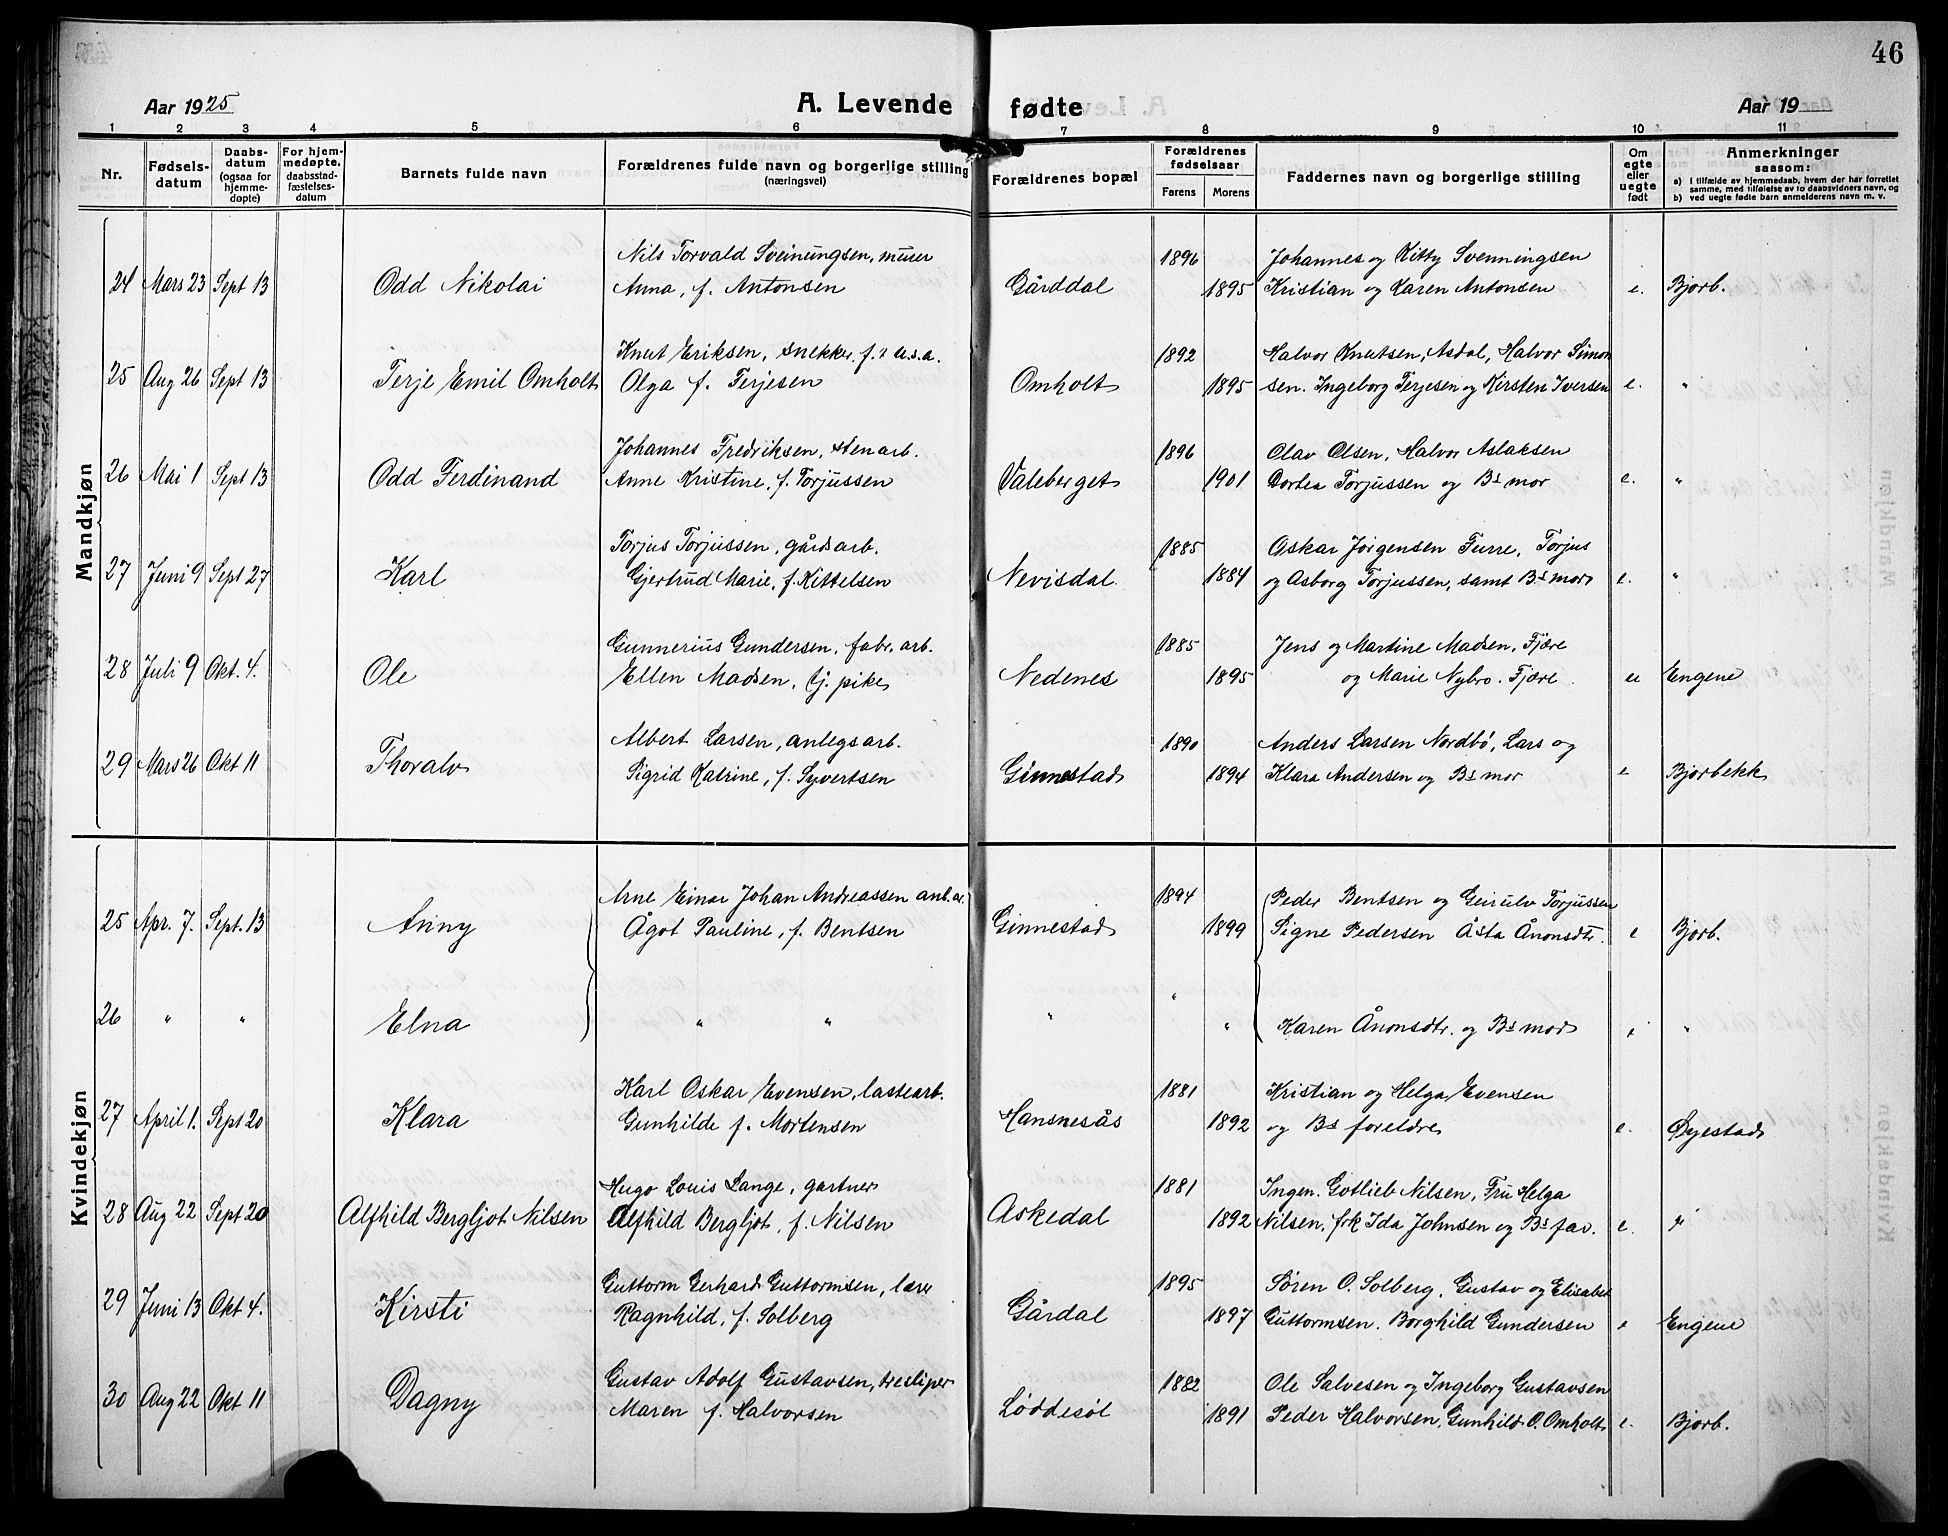 46
Aar 1925
A. Levende fødte
Aar 19
1 2 3 4 5 6 7 8 9 10 11
Nr.
Fødsels-
datum
Daabs-
datum
(ogsaa for
hjemme-
døpte)
For hjem-
medøpte,
daabsstad-
fæstelses-
datum
Barnets fulde navn
Forældrenes fulde navn og borgerlige stilling
(næringsvei)
Forældrenes bopæl
Forældrenes
fødselsaar
Farens Morens
Faddernes navn og borgerlige stilling
Om
egte
eller
uegte
født
Anmerkninger
saasom:
a) i tilfælde av hjemmedaab, hvem der har forrettet
samme, med tilføielse av to daabsvidners navn, og
b) ved uegte fødte barn anmelderens navn m. v.
Mandkjøn
Nils Torvald Sveinungsen, murer 1896 Johannes og Kitty Svenningsen
24 Mars 23 Sept 13 Odd Nikolai Anna, f. Antonsen Gårddal 1895 Kristian og Karen Antonsen e. Bjorb.
Knut Eriksen, snekker, f. i u.s.a. 1892 Halvor Knutsen, Asdal, Halvor Simon
25 Aug 26 Sept 13 Terje Emil Omholt Olga f. Terjesen Omholt 1895 sen. Ingeborg Terjesen og Kirsten Iversen e. "
Johannes Fredriksen, stenarb. 1896 Olav Olsen, Halvor Aslaksen
26 Mai 1 Sept 13 Odd Ferdinand Anne Kristine, f. Torjussen Valeberget 1901 Dortea Torjussen og Bs mor e. "
Torjus Torjussen, gårdsarb. 1885 Oskar Jørgensen Furre, Torjus
27 Juni 9 Sept 27 Karl Gjertrud Marie, f. Kittelsen Nevisdal 1884 og Asborg Torjussen, samt Bs mor e. "
Gunnerius Gundersen, fabr. arb. 1885 Jens og Martine Madsen, Fjære
28 Juli 9 Okt. 4. Ole Ellen Madsen, tj. pike Nedenes 1895 og Marie Nybro. Fjære ue Engene
Albert Larsen, anlegsarb. 1890 Anders Larsen Nordbö, Lars og
29 Mars 26 Okt 11 Thoralv Sigrid Katrine, f. Syvertsen Ginnestad 1894 Klara Andersen og Bs mor e Bjorbekk
Kvindekjøn
Arne Einar Johan Andreassen anl. ar. 1894 Peder Bentsen og Geirulv Torjussen
25 Apr. 7. Sept. 13 Anny Ågot Pauline, f. Bentsen Ginnestad 1899 Signe Pedersen Åsta Ånonsdtr. e Bjorb.
26 " " Elna " " " " " Karen Ånonsdtr. og Bs mor e "
Karl Oskar Evensen, lastearb. 1881 Kristian og Helga Evensen
27 April 1. Sept 20 Klara Gunhilde f. Mortensen Hansnesås 1892 og Bs foreldre e. Øyestad
Hugo Louis Lange, gartner 1881 Ingen. Gotlieb Nilsen, Fru Helga
28 Aug 22 Sept 20 Alfhild Bergljot Nilsen Alfhild Bergljot, f. Nilsen Askedal 1892 Nilsen, frk Ida Johnsen og Bs far. e. "
Guttorm Gerhard Guttormsen, lærer 1895 Søren O. Solberg, Gustav og Elisabet
29 Juni 13 Okt 4. Kirsti Ragnhild, f. Solberg Gårdal 1897 Guttormsen. Borghild Gundersen e Engene
Gustav Adolf Gustavsen, tresliper 1882 Ole Salvesen og Ingeborg Gustavsen
30 Aug 22 Okt 11 Dagny Maren f. Halvorsen Løddesøl 1891 Peder Halvorsen, Gunhild O. Omholt e. Bjorb.